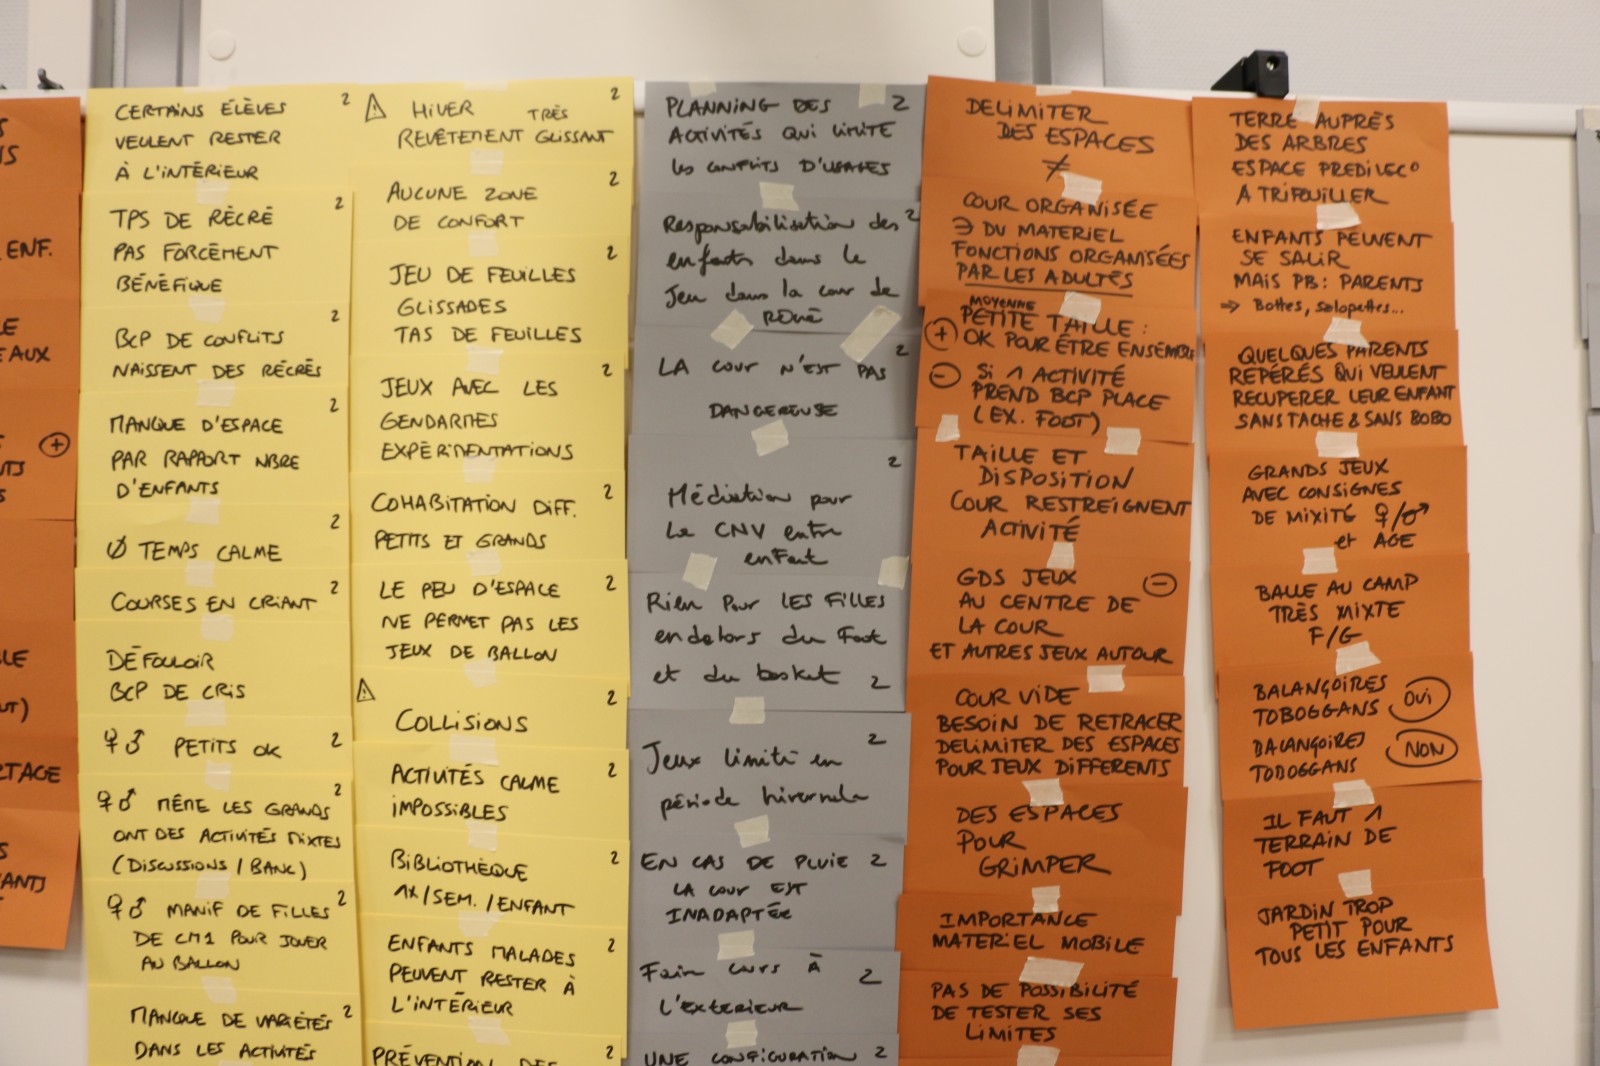 S
NS
ENF.
LE
EAUX
+
NTS
S
LE
UT)
RTAGE
S
ANTS
CERTAINS ÉLÈVES 2
VEULENT RESTER
À L'INTÉRIEUR
TPS DE RÉCRÉ 2
PAS FORCÉMENT
BÉNÉFIQUE
BCP DE CONFLITS 2
NAISSENT DES RÉCRÉS
MANQUE D'ESPACE 2
PAR RAPPORT NBRE
D'ENFANTS
Ø TEMPS CALME 2
COURSES EN CRIANT 2
DÉFOULOIR
BCP DE CRIS
♀ ♂ PETITS OK 2
♀ ♂ MÊME LES GRANDS 2
ONT DES ACTIVITÉS MIXTES
(DISCUSSIONS / BANC)
♀ ♂ MANIF DE FILLES 2
DE CM1 POUR JOUER
AU BALLON
MANQUE DE VARIÉTÉS 2
DANS LES ACTIVITÉS
⚠ HIVER TRÈS 2
REVÊTEMENT GLISSANT
AUCUNE ZONE 2
DE CONFORT
JEU DE FEUILLES 2
GLISSADES
TAS DE FEUILLES
JEUX AVEC LES 2
GENDARMES
EXPÉRIMENTATIONS
COHABITATION DIFF. 2
PETITS ET GRANDS
LE PEU D'ESPACE 2
NE PERMET PAS LES
JEUX DE BALLON
⚠ COLLISIONS 2
ACTIVITÉS CALME 2
IMPOSSIBLES
BIBLIOTHÈQUE 2
1X/SEM. /ENFANT
ENFANTS MALADES 2
PEUVENT RESTER À
L'INTÉRIEUR
PRÉVENTION DES 2
PLANNING DES 2
ACTIVITÉS QUI LIMITE
les CONFLITS D'USAGES
Responsabilisation des 2
enfants dans le
Jeu dans la cour de
RÉCRÉ
LA COUR N'EST PAS 2
DANGEREUSE
2
Médiation pour
La CNV entre
enfant
Rien Pour LES FILLES
en dehors du Foot
et du basket 2
Jeux limité en 2
période hivernale
EN CAS DE PLUIE 2
LA COUR EST
INADAPTÉE
Faire cours À 2
L'EXTERIEUR
UNE CONFIGURATION 2
DELIMITER
DES ESPACES
≠
COUR ORGANISÉE
∋ DU MATERIEL
FONCTIONS ORGANISÉES
PAR LES ADULTES
MOYENNE
PETITE TAILLE :
+ OK POUR ÊTRE ENSEMBLE
- SI 1 ACTIVITÉ
PREND BCP PLACE
(EX. FOOT)
TAILLE ET
DISPOSITION
COUR RESTREIGNENT
ACTIVITÉ
GDS JEUX -
AU CENTRE DE
LA COUR
ET AUTRES JEUX AUTOUR
COUR VIDE
BESOIN DE RETRACER
DELIMITER DES ESPACES
POUR JEUX DIFFERENTS
DES ESPACES
POUR
GRIMPER
IMPORTANCE
MATERIEL MOBILE
PAS DE POSSIBILITÉ
DE TESTER SES
LIMITES
TERRE AUPRÈS
DES ARBRES
ESPACE PREDILEC°
A TRIFOUILLER
ENFANTS PEUVENT
SE SALIR
MAIS PB : PARENTS
⇒ Bottes, salopettes...
QUELQUES PARENTS
REPÉRÉS QUI VEULENT
RECUPERER LEUR ENFANT
SANS TACHE & SANS BOBO
GRANDS JEUX
AVEC CONSIGNES
DE MIXITÉ ♀/♂
et AGE
BALLE AU CAMP
TRÈS MIXTE
F/G
BALANÇOIRES
TOBOGGANS OUI
BALANÇOIRES
TOBOGGANS NON
IL FAUT 1
TERRAIN DE
FOOT
JARDIN TROP
PETIT POUR
TOUS LES ENFANTS